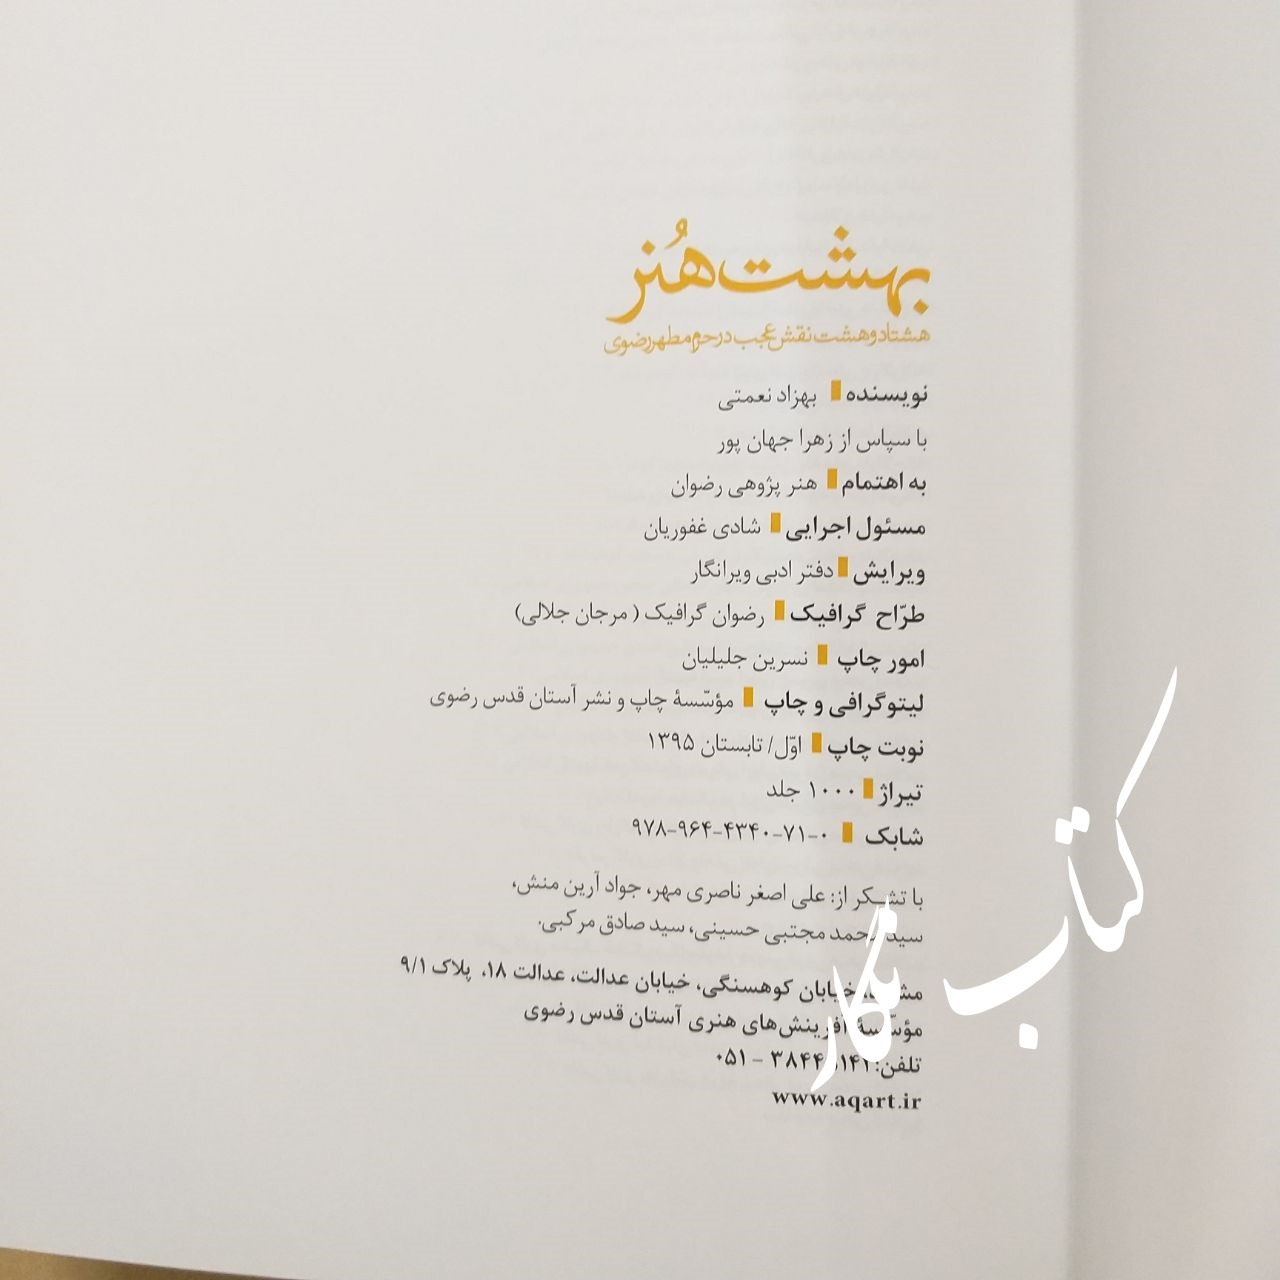 بهشت هُنر
هشتاد و هشت نقش عجب در حرم مطهر رضوی
نویسنده بهزاد نعمتی
با سپاس از زهرا جهان پور
به اهتمام هنر پژوهی رضوان
مسئول اجرایی شادی غفوریان
ویرایش دفتر ادبی ویرانگار
طرّاح گرافیک رضوان گرافیک ( مرجان جلالی)
امور چاپ نسرین جلیلیان
لیتوگرافی و چاپ مؤسّسهٔ چاپ و نشر آستان قدس رضوی
نوبت چاپ اوّل/ تابستان ۱۳۹۵
تیراژ ۱۰۰۰ جلد
شابک ۹۷۸-۹۶۴-۴۳۴۰-۷۱-۰
با تشکر از: علی اصغر ناصری مهر، جواد آرین منش،
سید محمد مجتبی حسینی، سید صادق مرکبی.
خیابان کوهسنگی، خیابان عدالت، عدالت ۱۸، پلاک ۹/۱
مؤسّسهٔ آفرینش‌های هنری آستان قدس رضوی
تلفن: ۰۵۱ –
www.aqart.ir
کتاب نگار